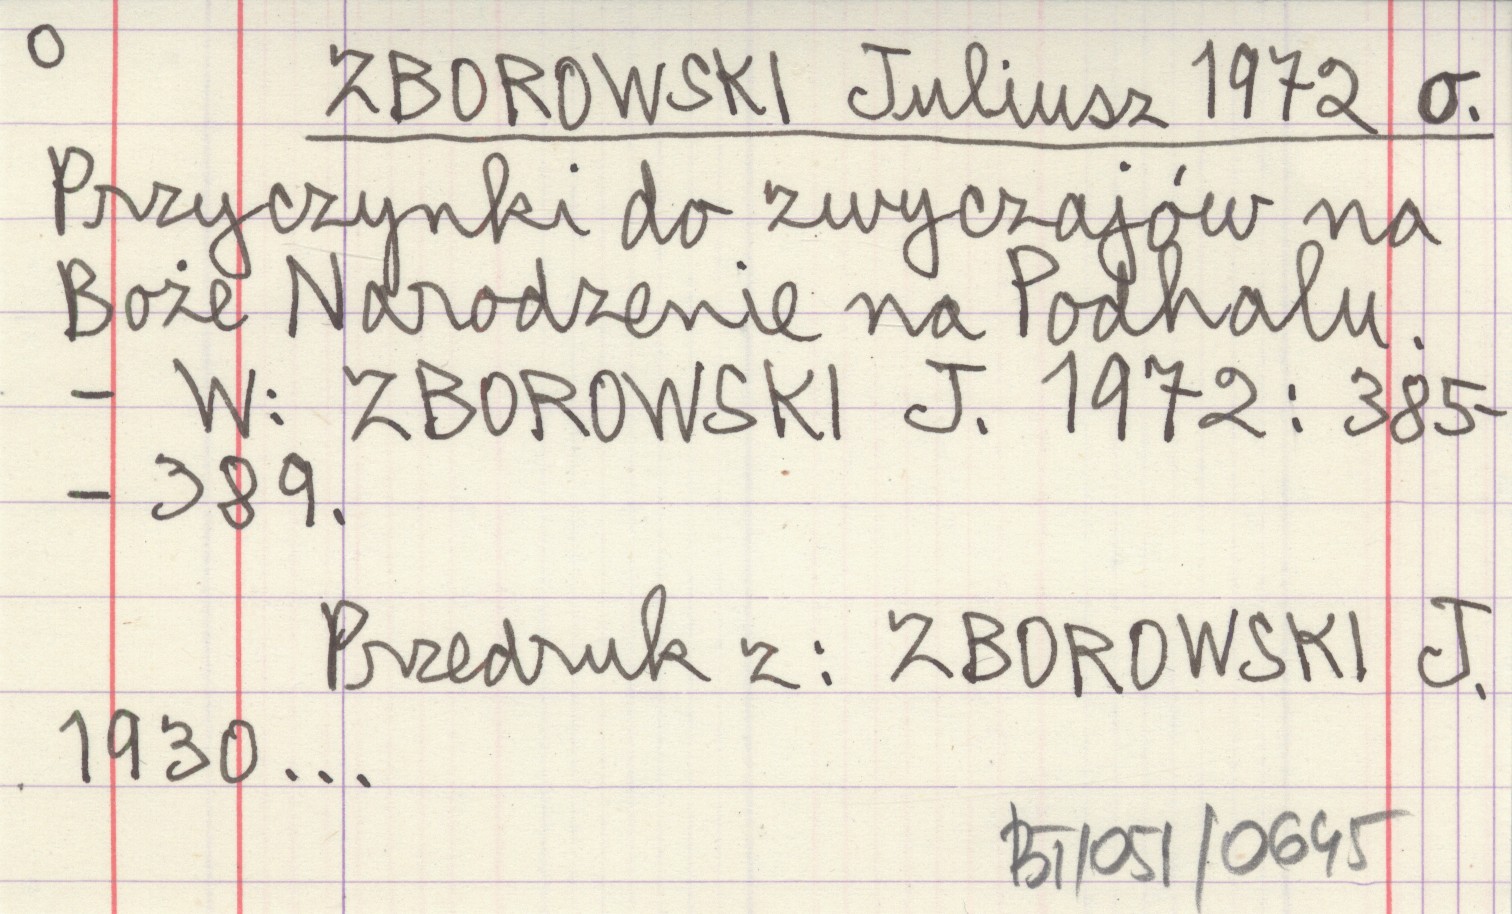 O
ZBOROWSKI Juliusz 1972 o.
Przyczynki do zwyczajów na
Boże Narodzenie na Podhalu.
- W: ZBOROWSKI J. 1972: 385-
- 389.
Przedruk z: ZBOROWSKI J.
1930...
BI/051/0645